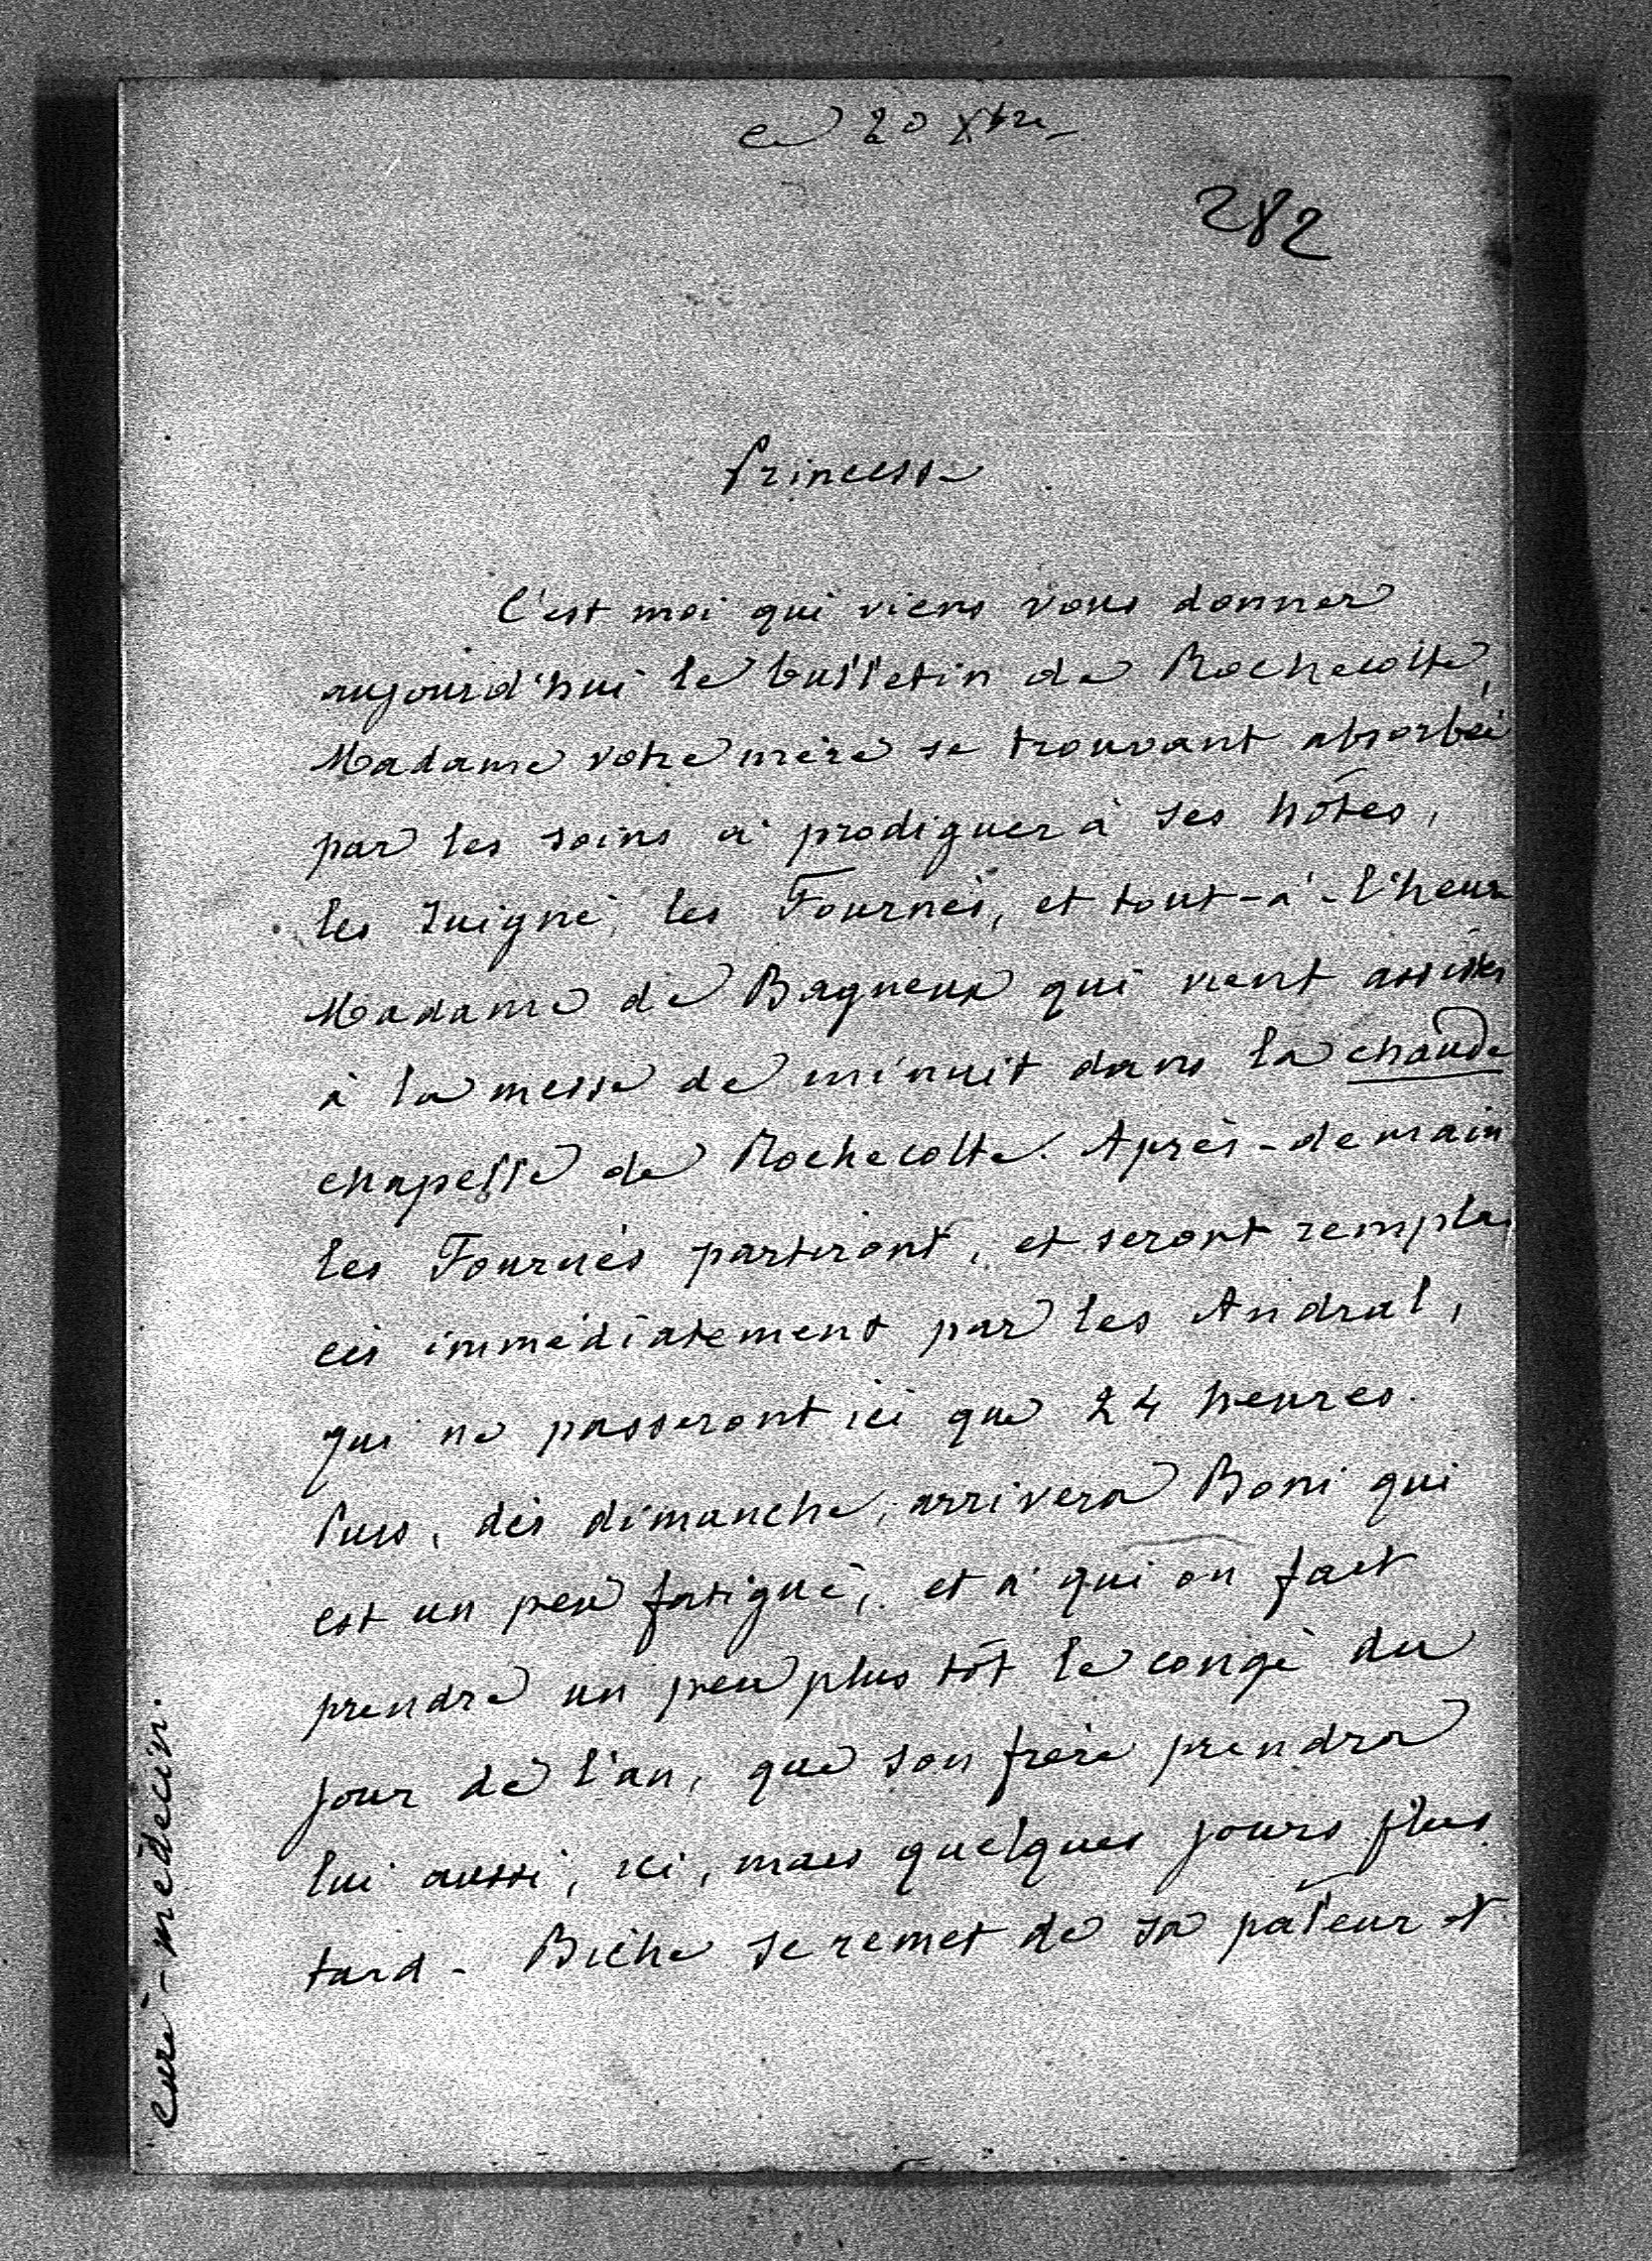 ce 20 Xbre
282
Princesse
C'est moi qui viens vous donner
aujourd'hui le bulletin de Rochecotte,
Madame votre mère se trouvant absorbée
par les soins à prodiguer à ses hôtes,
les Juigné, les Fournès, et tout-à-l'heure
Madame de Bagneux qui vient assister
à la messe de minuit dans la chaude
chapelle de Rochecotte. Après-demain
les Fournès partiront, et seront rempla
cés immédiatement par les Andral,
qui ne passeront ici que 24 heures.
Puis, dès dimanche, arrivera Boni qui
est un peu fatigué, et à qui on fait
prendre un peu plus tôt le congé du
jour de l'an, que son frère prendra
lui aussi, ici, mais quelques jours plus
tard - Biche se remet de sa pâleur et
Curé-médecin.